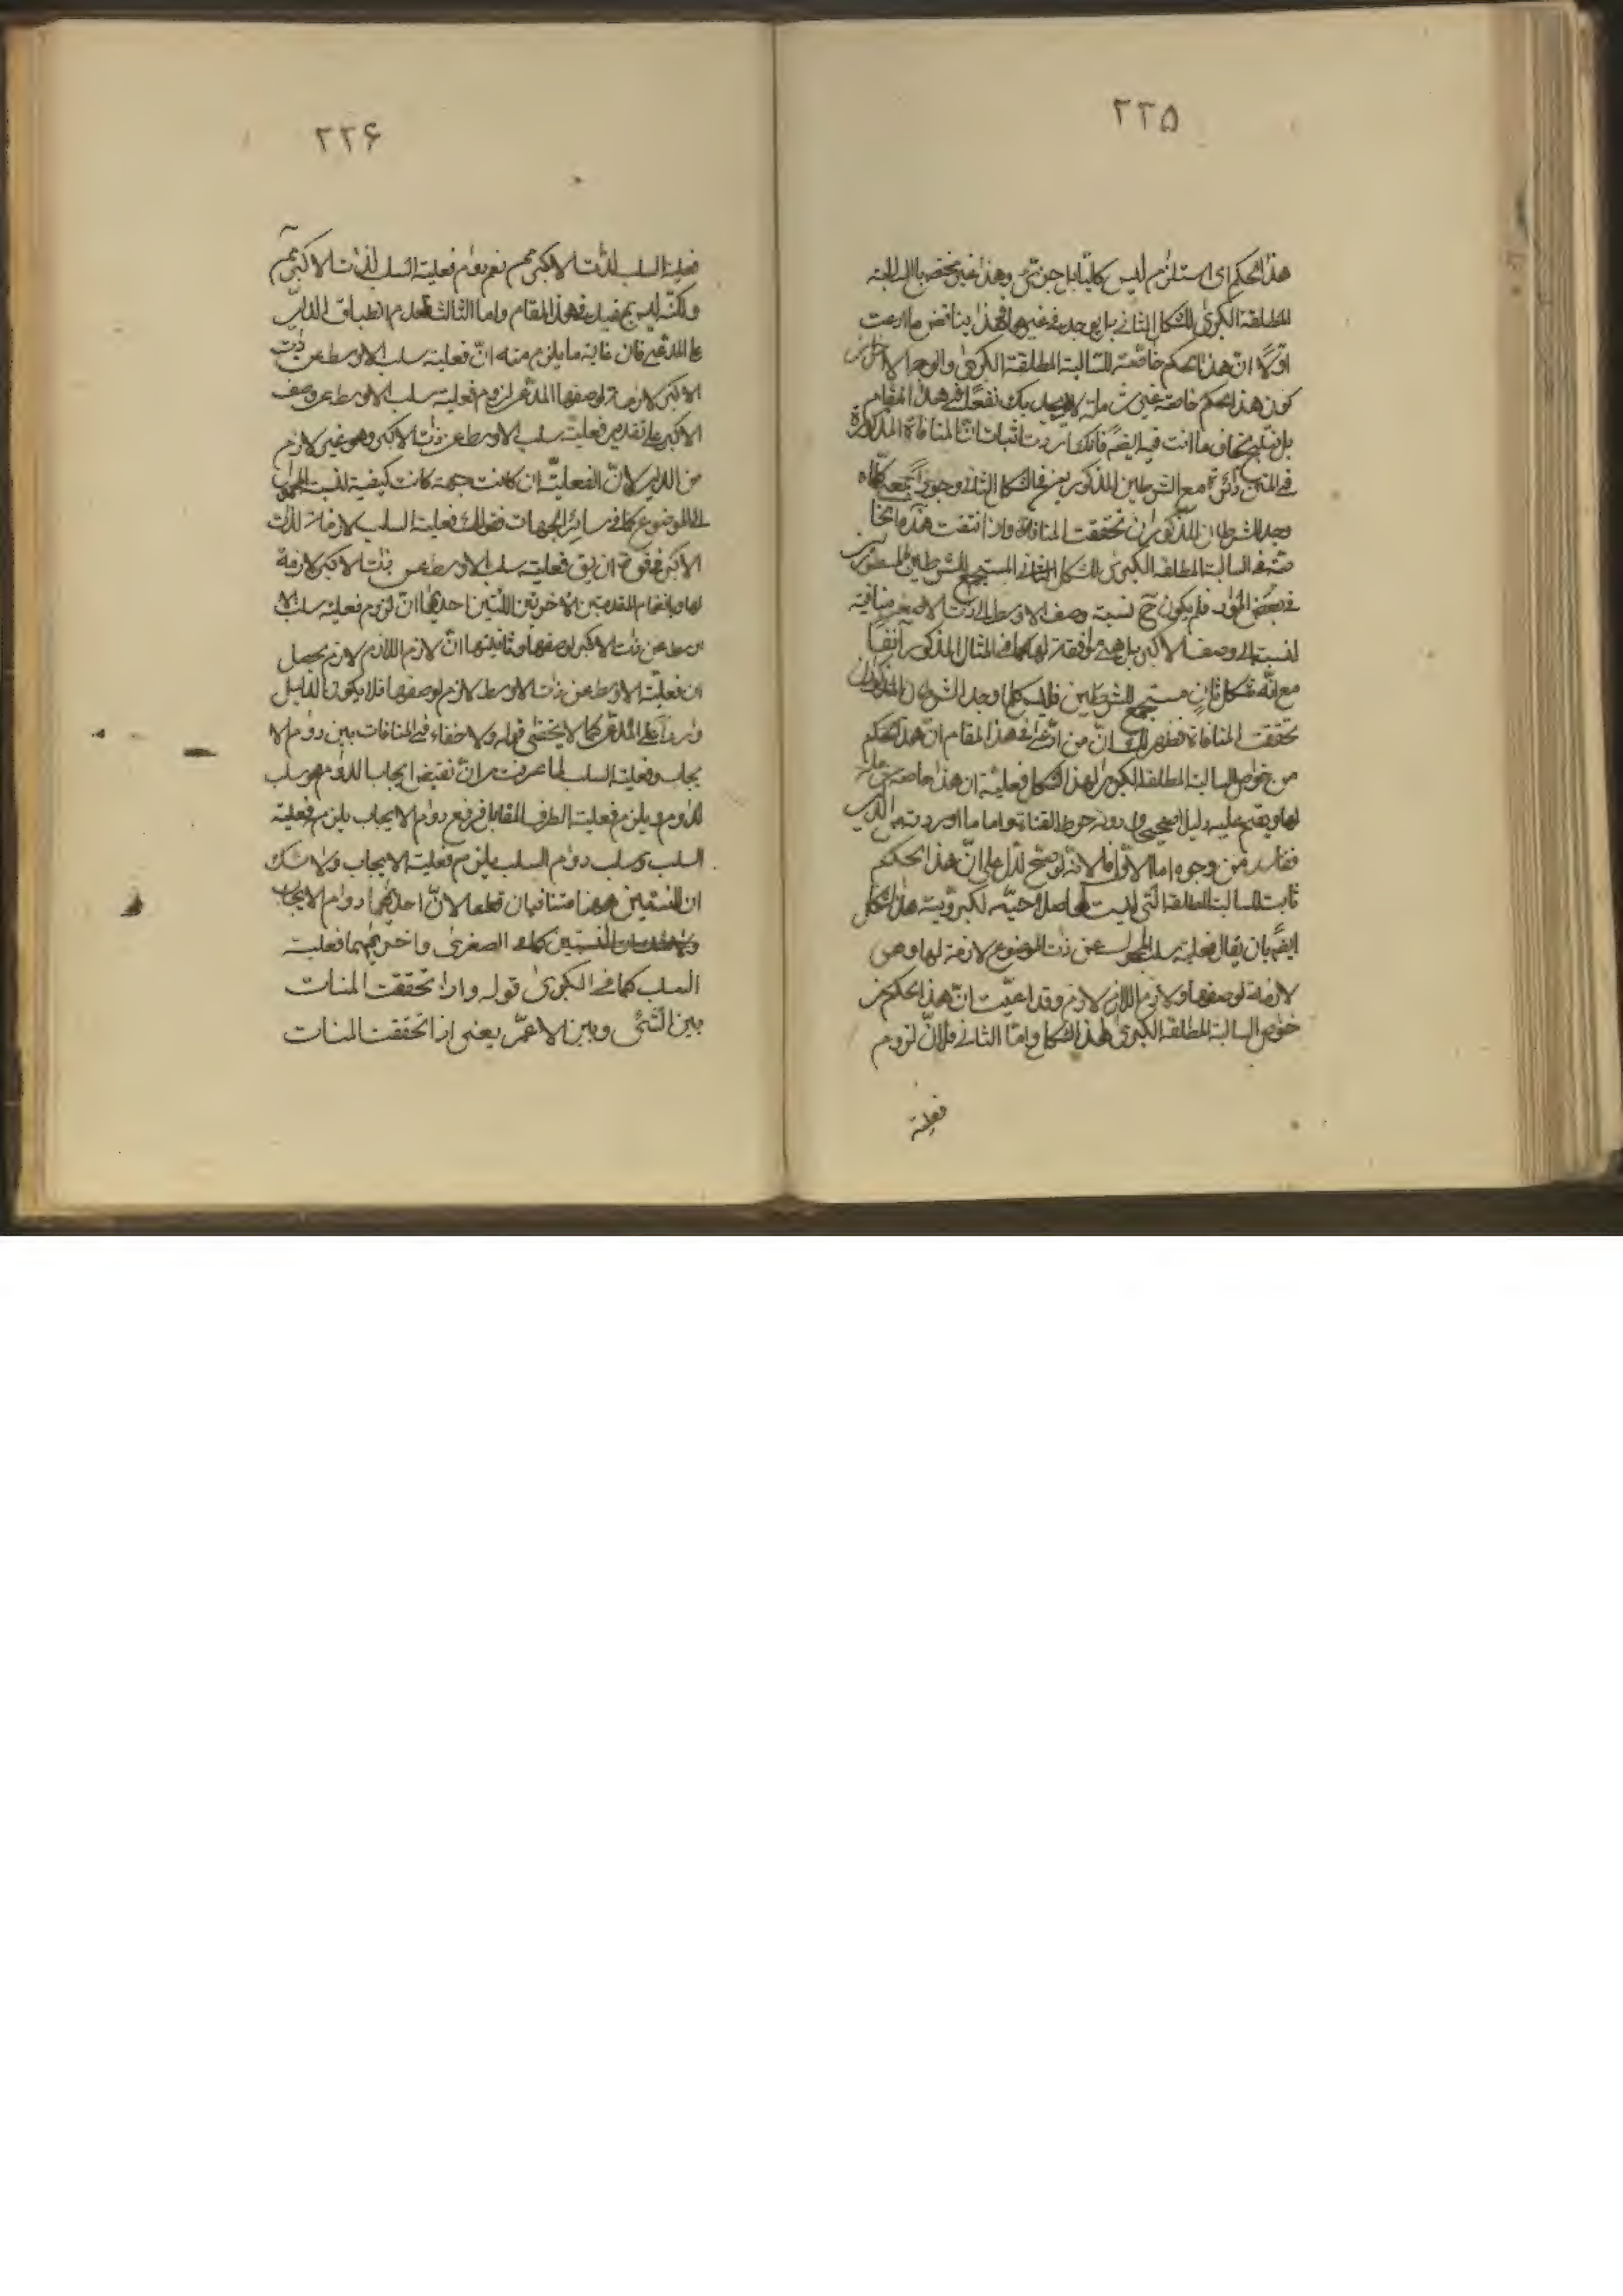 ٢٢۵
هذا الحكم اى استلزام ليس كليا بل جزئى وهذا غير مختص بالسالبة
المطلقة الكبرى للشكل الثانى بل يوجد فى غيرها فهذا يناقض ما ادعيت
اولا ان هذا الحكم خاصة للسالبة المطلقة الكبرى
كون هذا الحكم خاصة غير شاملة نفعا فى هذا المقام
بل ما انت فيه ايضا فانك اردت اثبات ان المنافاة المذكورة
فى المتن دائرة مع الشرطين المذكورين فى الشكل الثانى وجودا كلما
وجد الشرطان المذكوران تحققت المنافاة واذا انتفت هذه الخا
صة فى السالبة المطلقة الكبرى للشكل الثانى المستجمع للشرطين
فى بعض المواد فلم يكون ح نسبة وصف الاوسط الى ذات الاصغر منافية
لنسبته الى وصف الاكبر بل هى موافقة لها كما فى المثال المذكور آنفا
مع انه شكل ثان مستجمع للشرطين فليس كلما وجد الشرطان المذكوران
تحققت المنافاة فظهر لك ان من ادعى فى هذا المقام ان هذا الحكم
من خواص السالبة المطلقة الكبرى لهذا الشكل فعليه ان هذا خاصة
لها ويقيم عليه دليل صحيح و دونه خرط القتاد واما ما اوردته من الدليل
ففاسد من وجوه اما الاول فلانه لو صح لدل على ان هذا الحكم
ثابت للسالبة المطلقة التى ليست لكبروية هذا الشكل
ايضا بان يقال فعلية سلب المحمول عن ذات الموضوع لازمة لها وهى
لازمة لوصفها ولازم اللازم لازم وقد ادعيت ان هذا الحكم من
خواص السالبة المطلقة الكبرى لهذا الشكل واما الثانى فلان لزوم
فعلية
٢٢۶
فعلية السلب لذات الاكبر مم نعم دوام فعلية السلب لذات الاكبر مم
ولكنه ليس بمفيد فى هذا المقام واما الثالث فلعدم انطباق الدليل
على المدعى فان غاية ما يلزم منه ان فعلية سلب الاوسط عن ذات
الاكبر لازمة لوصفها المدعى لزوم فعلية سلب الاوسط عن وصف
الاكبر على تقدير فعلية سلب الاوسط عن ذات الاكبر وهو غير لازم
من الدليل لان الفعلية ان كانت جهة كانت كيفية لنسبة المحمول
الى الموضوع كما فى سائر الجهات فقولك فعلية السلب لازمة لذات
الاكبر فى قوة ان يق فعلية سلب الاوسط عن ذات الاكبر لازمة
لها وبانضمام المقدمتين الاخريين اللتين احديهما ان لزوم فعلية سلب الا
وسط عن ذات الاكبر لوصفها وثانيتهما ان لازم اللازم لازم يحصل
ان فعلية الاوسط عن ذات الاوسط لازم لوصفها فلا يكون الدليل
واردا على المدعى كما لا يخفى قوله ولا خفاء فى المنافات بين دوام الا
يجاب وفعلية السلب لما عرفت من ان نقيض ايجاب الدوام هو سلب
الدوام ويلزم فعلية الطرف المقابل فرفع دوام الايجاب يلزم فعلية
السلب وسلب دوام السلب يلزم فعلية الايجاب ولا شك
ان النسبتين ههنا متنافيتان قطعا لان احديهما دوام الايجاب
كما فى الصغرى واخريهما فعلية
السلب كما فى الكبرى قوله واذا تحققت المنات
بين الشئ وبين الاعم يعنى اذا تحققت المنات